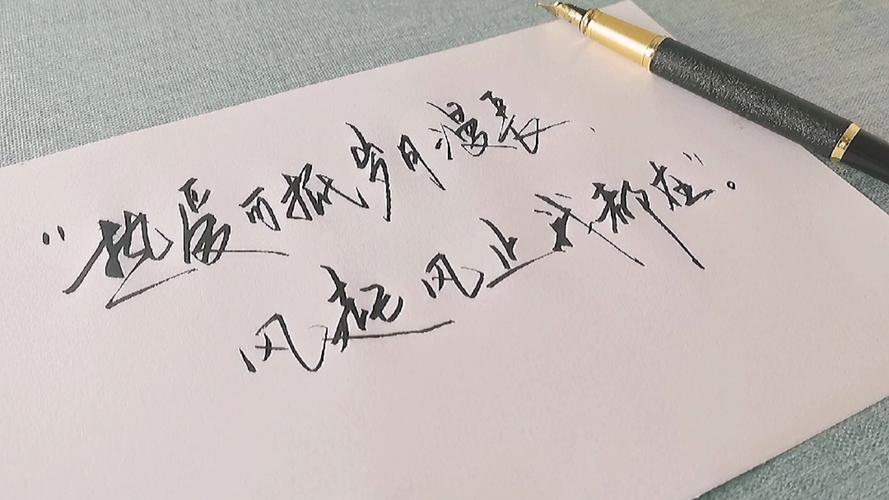 “热爱可抵岁月漫长、
风起风止我都在”。